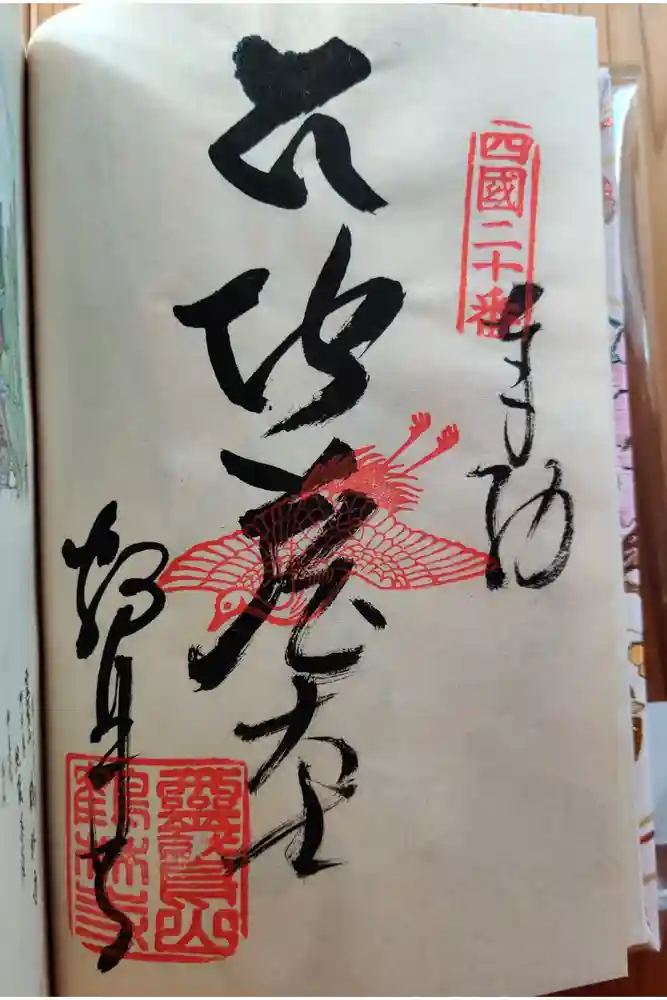 四國二十番
奉納
地蔵大士
鶴林寺
靈鷲山
鶴林寺